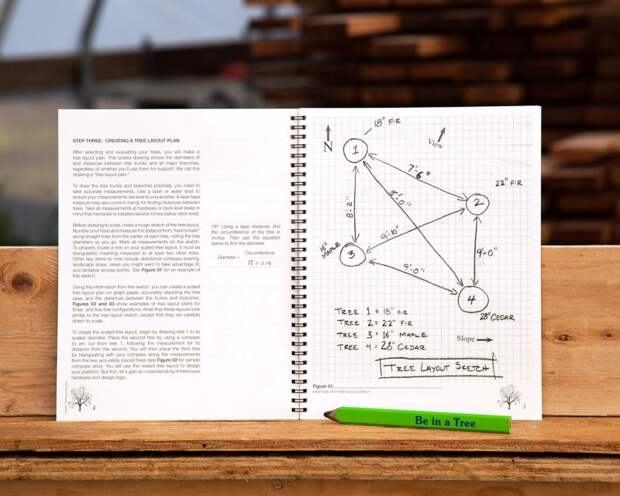 STEP THREE: CREATING A TREE LAYOUT PLAN
After selecting and evaluating your trees, you will make a
tree layout plan. This scaled drawing shows the diameters of
and distances between tree trunks and all major branches,
regardless of whether you'll use them for support. We call this
drawing a "tree layout plan."
To draw the tree trunks and branches precisely, you need to
take accurate measurements. Use a laser or water level to
ensure your measurements are level to one another. A laser tape
measure may also come in handy for finding distances between
trees. Take all measurements at hardware or deck level (keep in
mind that hardware is installed several inches below deck level).
Before drawing to scale, make a rough sketch of the tree layout.
Number your trees and measure the distance from "bark to bark"
along straight lines from the center of each tree, noting the tree
diameters as you go. Mark all measurements on the sketch.
To properly locate a tree on your scaled tree layout, it must be
triangulated, meaning measured to at least two other trees.
Other key items to note include directional compass bearing,
landscape slope, views you might want to take advantage of,
and tentative access points. See Figure 01 for an example of
this sketch.
Using the information from the sketch, you can create a scaled
tree layout plan on graph paper, accurately depicting the tree
sizes and the distances between the trunks and branches.
Figures 02 and 03 show examples of tree layout plans for
three, and five tree configurations. Note that these layouts look
similar to the tree layout sketch, except that they are carefully
drawn to scale.
To create the scaled tree layout, begin by drawing tree 1 to its
scaled diameter. Place the second tree by using a compass
to arc out from tree 1, following the measurement for its
distance from the second. You will then place the third tree
by triangulating with your compass using the measurements
from the two accurately placed trees (see Figure 02 for simple
compass arcs). You will use this scaled tree layout to design
your platform. But first, let's gain an understanding of treehouse
hardware and design logic.
TIP: Using a tape measure, find
the circumference of the tree in
inches. Then use the equation
below to find the diameter.
Diameter = Circumference
π (~ 3.14)
18" FIR
N
View
1
7'-6"
22" FIR
2
8'-2"
8'-0"
9'-10"
16"
MAPLE
3
9'-0"
9'-0"
4
28" CEDAR
TREE 1 = 18" FIR
TREE 2 = 22" FIR
TREE 3 = 16" MAPLE
TREE 4 = 28" CEDAR
Slope
TREE LAYOUT SKETCH
Figure 01
Be in a Tree